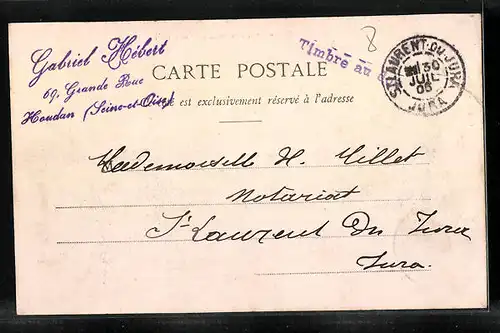 Gabriel Hébert
69, Grande Rue
Houdan (Seine-et-Oise)
8
Timbre au
ST LAURENT-DU-JURA
30
JUIL
05
JURA
CARTE POSTALE
est exclusivement réservé à l'adresse
Mademoiselle H. Millet
Notariat
St Laurent Du Jura
Jura.